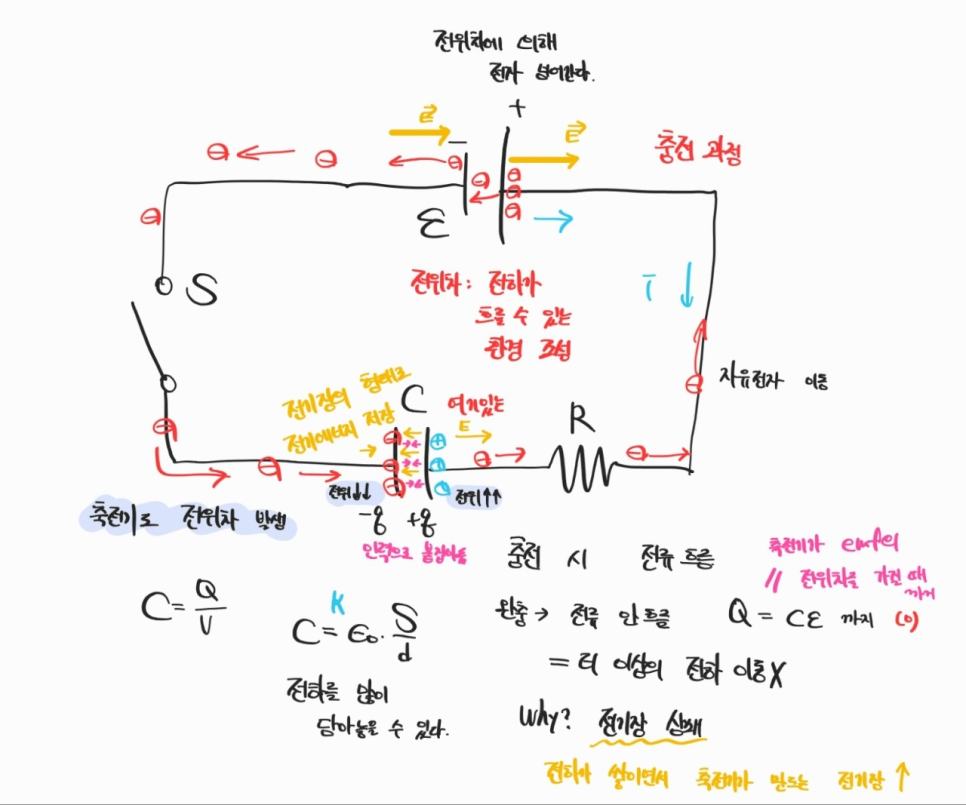 전위차에 의해
전자 넘어간다.
E
- +
E
충전 과정
ε
S
전위차: 전하가
흐를 수 있는
환경 조성
I
자유전자 이동
전기장의 형태로
전기에너지 저장
C
여기있는
E
R
전위↓↓
전위↑↑
-q +q
인력으로 붙잡아놓음
축전기로 전위차 발생
충전 시 전류 흐름
축전기가 emf의
// 전위차을 가질 때
까지
완충 → 전류 안 흐름
Q = Cε 까지 (o)
= 더 이상의 전하 이동 X
C = Q/V
K
C = ε₀ · S/d
전하를 많이
담아놓을 수 있다.
Why? 전기장 상쇄
전하가 쌓이면서 축전기가 만드는 전기장 ↑